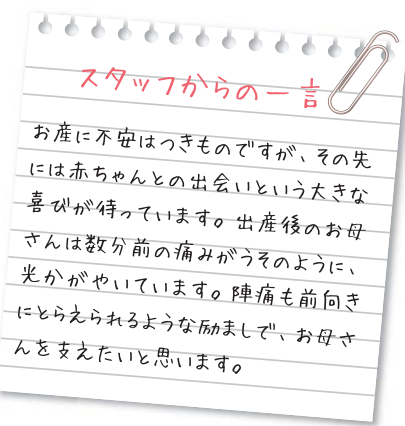 スタッフからの一言
お産に不安はつきものですが、その先
には赤ちゃんとの出会いという大きな
喜びが待っています。出産後のお母
さんは数分前の痛みがうそのように、
光かがやいています。陣痛も前向き
にとらえられるような励ましで、お母さ
んを支えたいと思います。